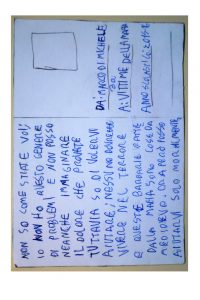 NON SO COME STATE VOI,
IO NON HO QUESTO GENERE
DI PROBLEMI E NON POSSO
NEANCHE IMMAGINARE
IL DOLORE CHE PROVATE
TUTTAVIA SO DI VOLERVI
AIUTARE, NESSUNO DOVREBBE
VIVERE NEL TERRORE
E QUESTE BARBARIE FATTE
DALLA MAFIA SONO COSE DA
MEDIOEVO. ORA PERÒ POSSO
AIUTARVI SOLO MORALMENTE.
DA: MARCO DI MICHELE
A: VITTIME DELLA MAFIA
ANNO SCOLASTICO